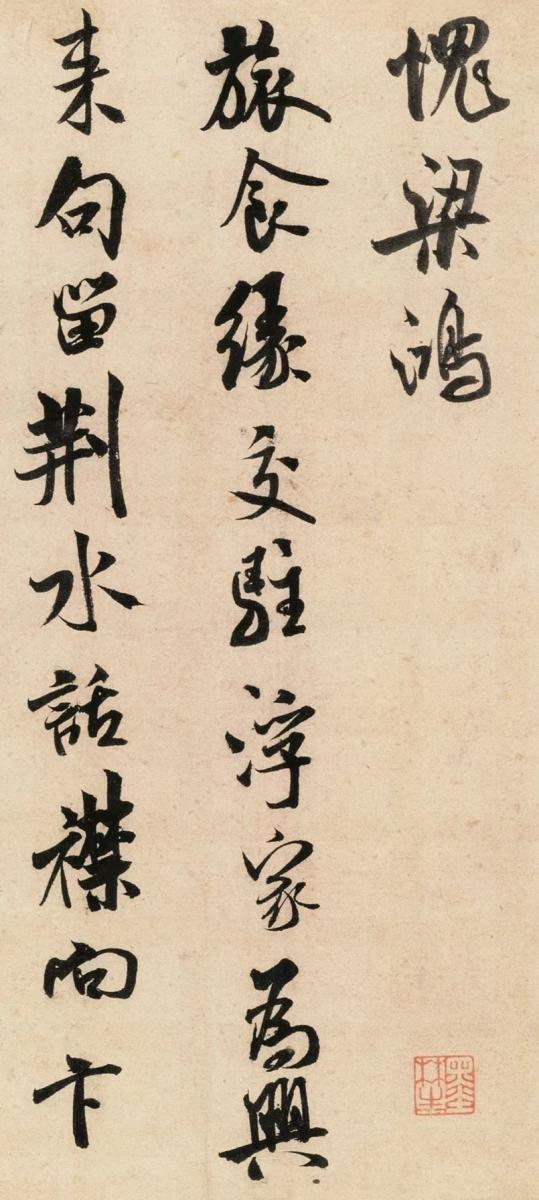 愧梁鴻
旅食緣交駐浮家為興
来句留荆水話襟向卞